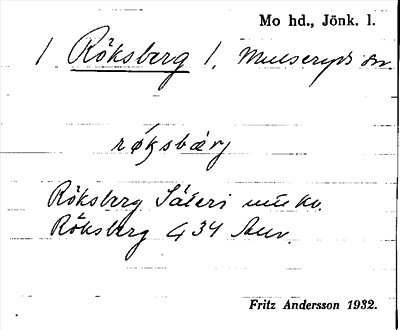 Mo hd., Jönk. l.
1 Röksberg 1. Mulseryds sn.
Röksberg Säteri
Röksberg G 34 Auv.
Fritz Andersson 1932.